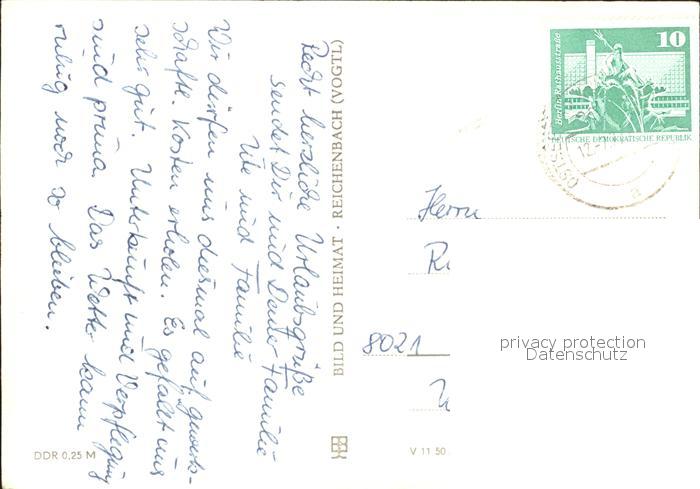 Recht herzliche Urlaubsgrüße
sendet Dir und Deiner Familie
Ute und Familie
Wir dürfen uns diesmal auf Gewerk-
schafts. Kosten erholen. Es gefällt uns
sehr gut. Unterkunft und Verpflegung
sind prima. Das Wetter kann
ruhig noch so bleiben.
DDR 0,25 M
BILD UND HEIMAT · REICHENBACH (VOGTL)
V 11 50
10
Berlin, Rathausstraße
DEUTSCHE DEMOKRATISCHE REPUBLIK
OSTSEEBAD
12.
a
Herrn
8021
privacy protection
Datenschutz